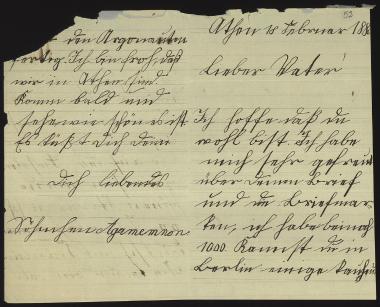 Athen 18 Februar 188
Lieber Vater
Ich hoffe daß du
wohl bist. Ich habe
mich sehr gefreut
über deinen Brief
und die Briefmar-
ken, ich habe beinah
1000. Kannst du in
Berlin einige kaufen
den Argonauten
fertig. Ich bin froh, daß
wir in Athen sind.
Komm bald und
sehe wie schön es ist
Es küßt Dich Dein
Dich liebendes
Söhnchen Agamemnon.
53